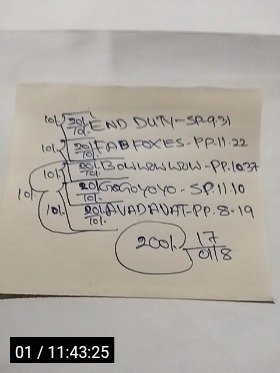 10/. 20/. END DUTY-SP.9.31
10/.
10/. 20/. FAB FOXES-PP.11.22
10/.
10/. 20/. BOWWOWWOW-PP.10.37
10/.
10/. 20/. GOGOYOYO-SP.11.10
10/.
10/. 20/. AVADAVAT-PP.8-19
10/.
200/. 17
01/8
01 / 11:43:25